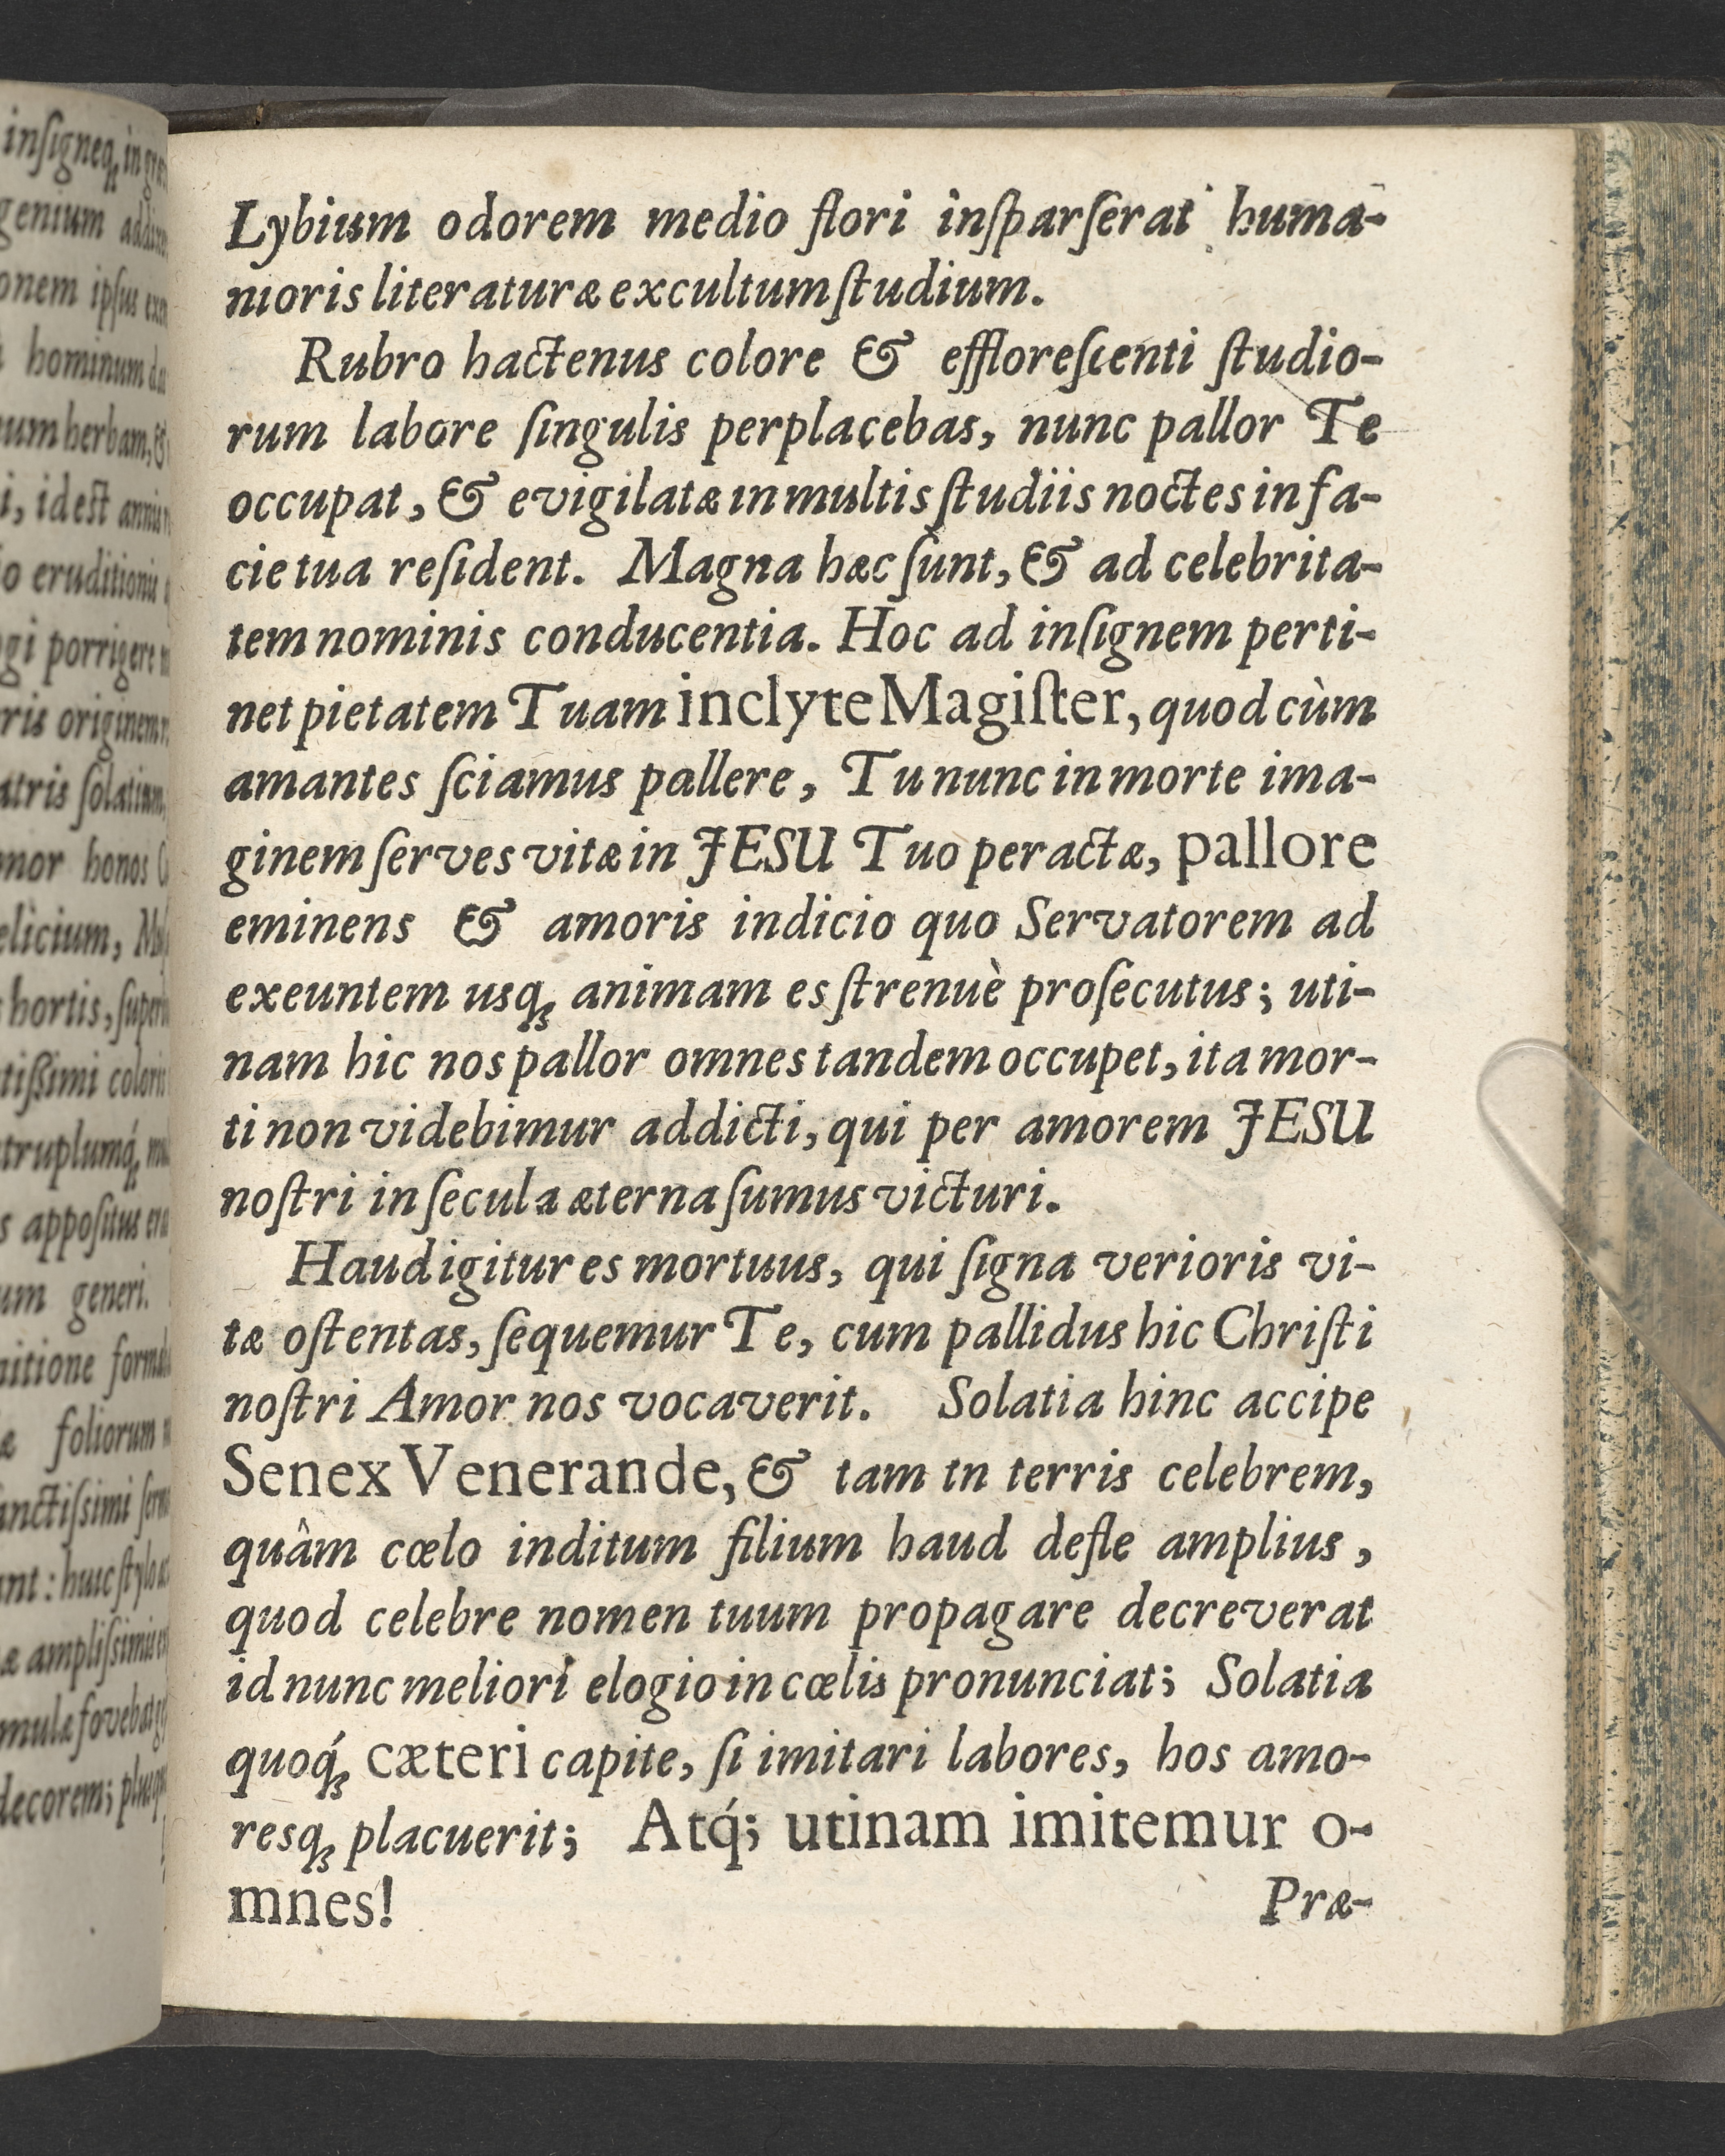 Lybium odorem medio flori inſparſerat huma-
nioris literaturæ excultum ſtudium.
Rubro hactenus colore & effloreſcenti ſtudio-
rum labore ſingulis perplacebas, nunc pallor Te
occupat, & evigilatæ in multis ſtudiis noctes in fa-
cie tua reſident. Magna hæc ſunt, & ad celebrita-
tem nominis conducentia. Hoc ad inſignem perti-
net pietatem Tuam inclyte Magiſter, quod cùm
amantes ſciamus pallere, Tu nunc in morte ima-
ginem ſerves vitæ in JESU Tuo peractæ, pallore
eminens & amoris indicio quo Servatorem ad
exeuntem usq; animam es ſtrenuè proſecutus; uti-
nam hic nos pallor omnes tandem occupet, ita mor-
ti non videbimur addicti, qui per amorem JESU
noſtri in ſecula æterna ſumus victuri.
Haud igitur es mortuus, qui ſigna verioris vi-
tæ oſtentas, ſequemur Te, cum pallidus hic Chriſti
noſtri Amor nos vocaverit. Solatia hinc accipe
Senex Venerande, & tam in terris celebrem,
quâm cœlo inditum filium haud defle amplius,
quod celebre nomen tuum propagare decreverat
id nunc meliori elogio in cœlis pronunciat; Solatia
quoq́; cæteri capite, ſi imitari labores, hos amo-
resq; placuerit; Atq́; utinam imitemur o-
mnes!
Præ-